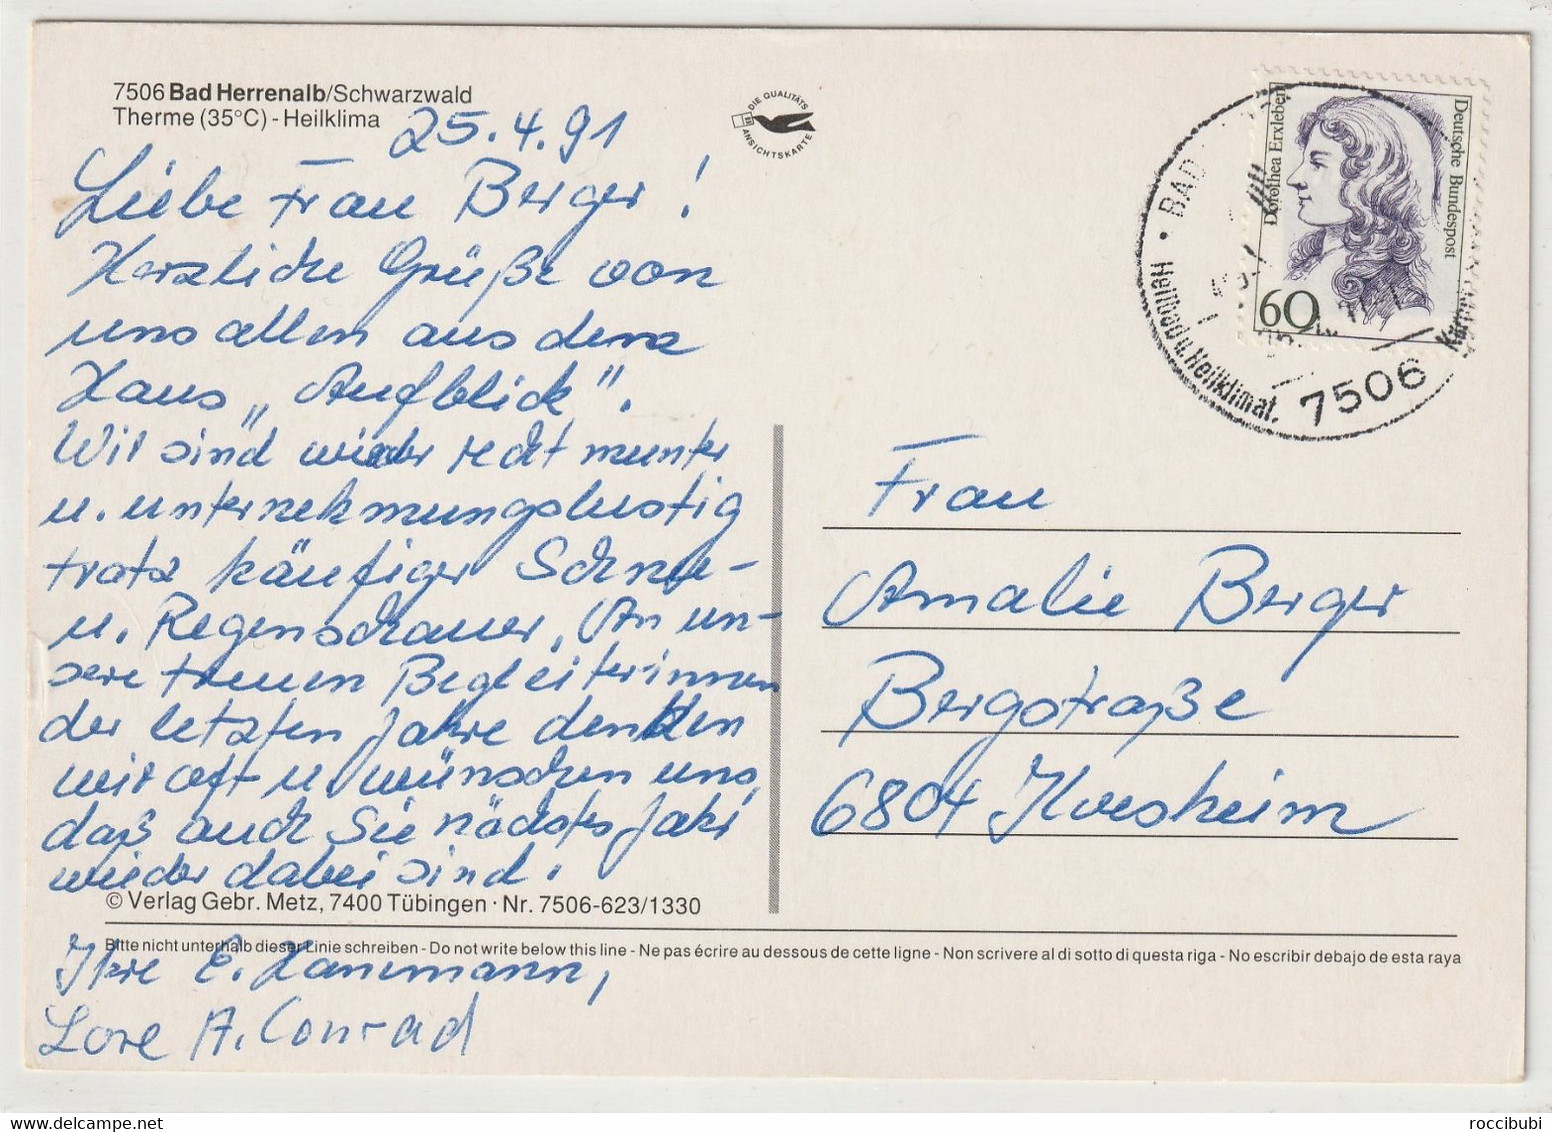 7506 Bad Herrenalb/Schwarzwald
Therme (35°C) - Heilklima
25.4.91
Liebe Frau Berger!
Herzliche Grüße von
uns allen aus dem
Haus „Aufblick".
Wir sind wieder recht munter
u. unternehmungslustig
trotz häufiger Schnee-
u. Regenschauer. An un-
sere treuen Begleiterinnen
der letzten Jahre denken
wir oft u. wünschen uns,
daß auch Sie nächstes Jahr
wieder dabei sind.
© Verlag Gebr. Metz, 7400 Tübingen · Nr. 7506-623/1330
Bitte nicht unterhalb dieser Linie schreiben - Do not write below this line - Ne pas écrire au dessous de cette ligne - Non scrivere al di sotto di questa riga - No escribir debajo de esta raya
Ihre E. Hammann,
Lore A. Conrad
DIE QUALITÄTS
ANSICHTSKARTE
BAD
Heilbad u. Heilklimat.
7506
Dorothea Erxleben
Deutsche Bundespost
60
Frau
Amalie Berger
Bergstraße
6804 Ilvesheim
roccibubi